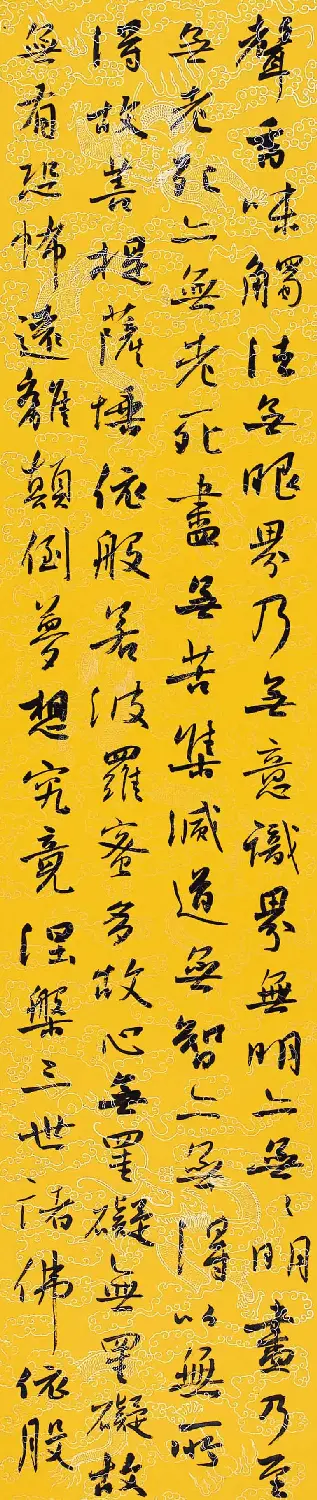 聲香味觸法無眼界乃無意識界無明亦無々明盡乃至
無老死亦無老死盡無苦集滅道無智亦無得以無所
得故菩提薩埵依般若波羅蜜多故心無罣礙無罣礙故
無有恐怖遠離顛倒夢想究竟涅槃三世諸佛依般